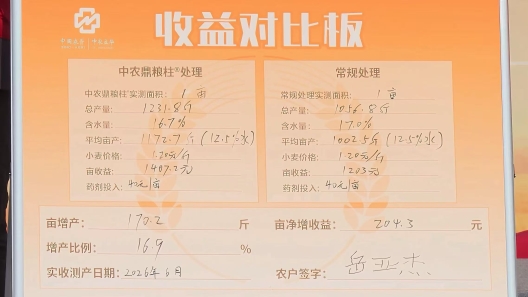 收益对比板
中农鼎粮柱®处理
中农鼎粮柱®实测面积: 1 亩
总产量: 1231.8斤
含水量: 16.7%
平均亩产: 1172.7斤(12.5%水)
小麦价格: 1.20元/斤
亩收益: 1407.2元
药剂投入: 40元/亩
常规处理
常规处理实测面积: 1 亩
总产量: 1056.8斤
含水量: 17.0%
平均亩产: 1002.5斤(12.5%水)
小麦价格: 1.20元/斤
亩收益: 1203元
药剂投入: 40元/亩
亩增产: 170.2 斤
亩净增收益: 204.3 元
增产比例: 16.9 %
实收测产日期: 2026年6月
农户签字: 岳亚杰